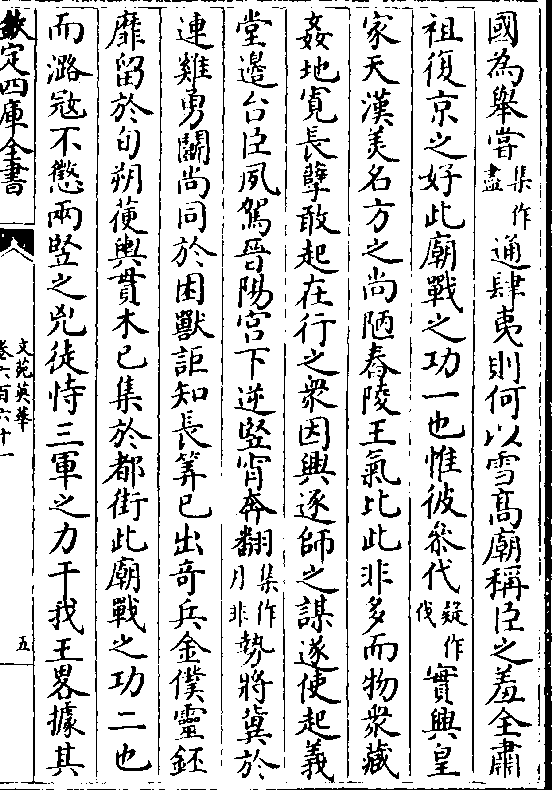 國為舉嘗集作盡通肆夷則何以雪髙廟稱臣之羞全肅
祖復京之好此廟戰之功一也惟彼叅代疑作伐實興皇
家天漢美名方之尚陋舂陵王氣比此非多而物衆藏
姦地寛長孽敢起在行之衆因興逐師之謀遂使起義
堂邉台臣夙駕晉陽宮下逆竪宵奔翻集作月非勢將冀於
連雞勇鬭尚同於困獸詎知長筭已出奇兵金僕靈鉟
靡留於旬朔葼輿貫木已集於都街此廟戰之功二也
而潞冦不懲兩竪之兇徒恃三軍之力干我王畧據其
欽定四庫全書
文苑英華
卷六百六十一
五